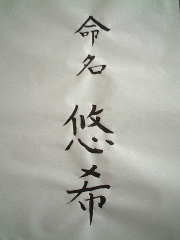 命名 悠希